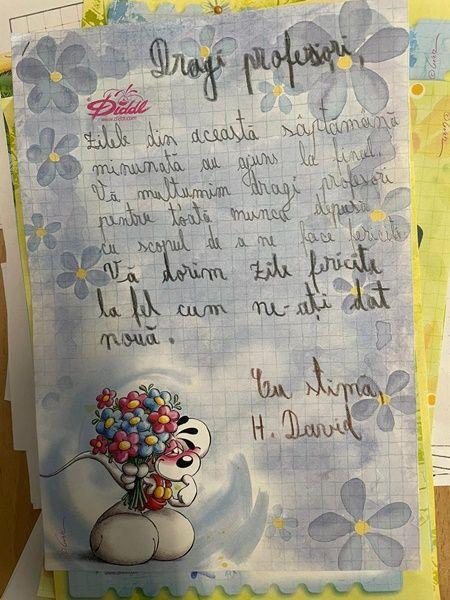 Dragi profesori,
Diddl
www.diddl.com
Zilele din această săptămână
minunată au ajuns la final.
Vă multumim dragi profesori
pentru toată munca depusă
cu scopul de a ne face fericiți
Vă dorim zile fericite
la fel cum ne-ați dat
nouă.
Cu stimă,
H. David